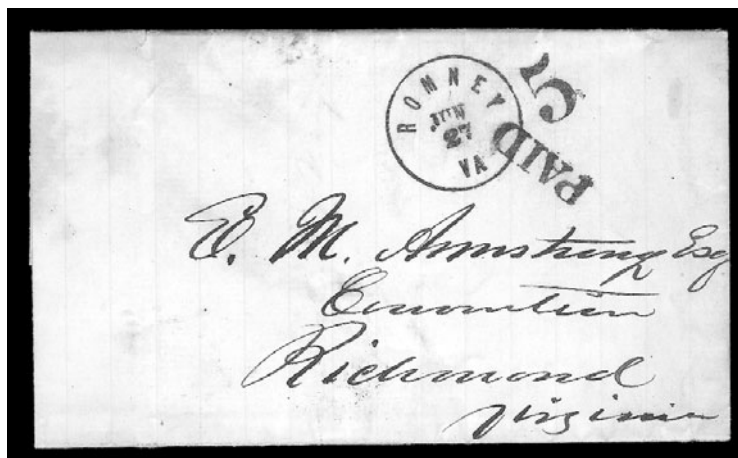 ROMNEY
JUN
27
VA
PAID 5
E. M. Armstrong Esq
Convention
Richmond
Virginia